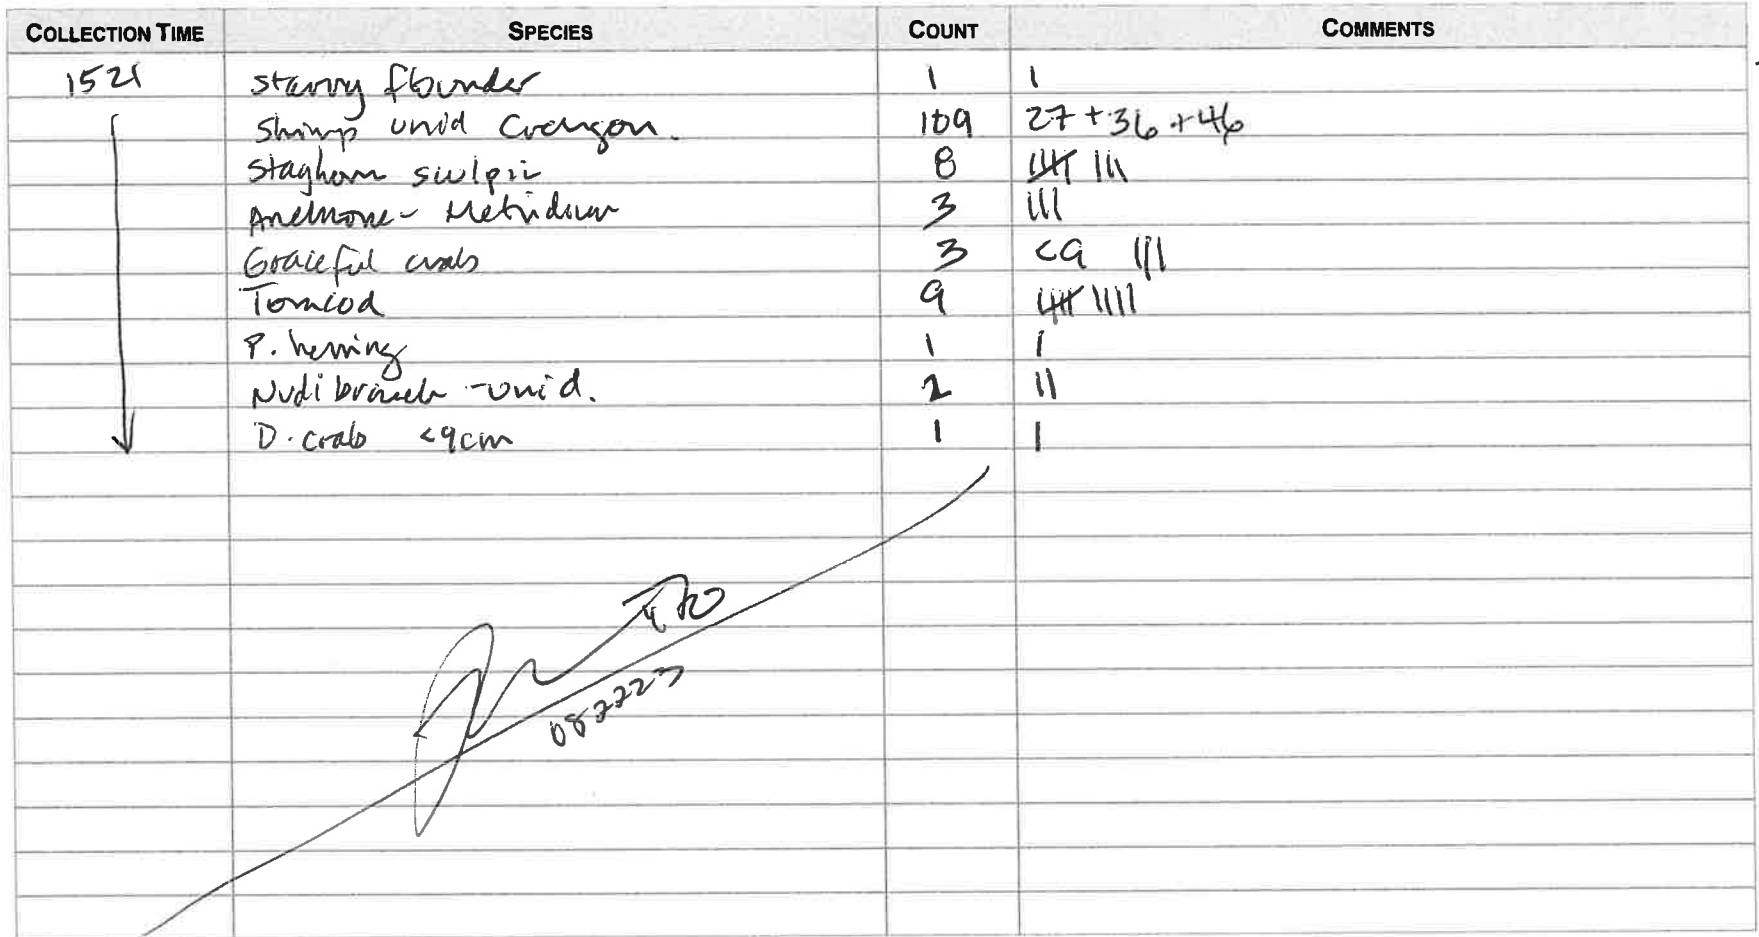 COLLECTION TIME SPECIES COUNT COMMENTS
1521 starry flounder 1 |
shrimp unid Crangon. 109 27 + 36 + 46
Staghorn sculpin 8 |||| |||
Anemone - Metridium 3 |||
Graceful crabs 3 <9 |||
Tomcod 9 |||| ||||
P. herring 1 |
Nudibranch - unid. 2 ||
D. crab <9cm 1 |
082223